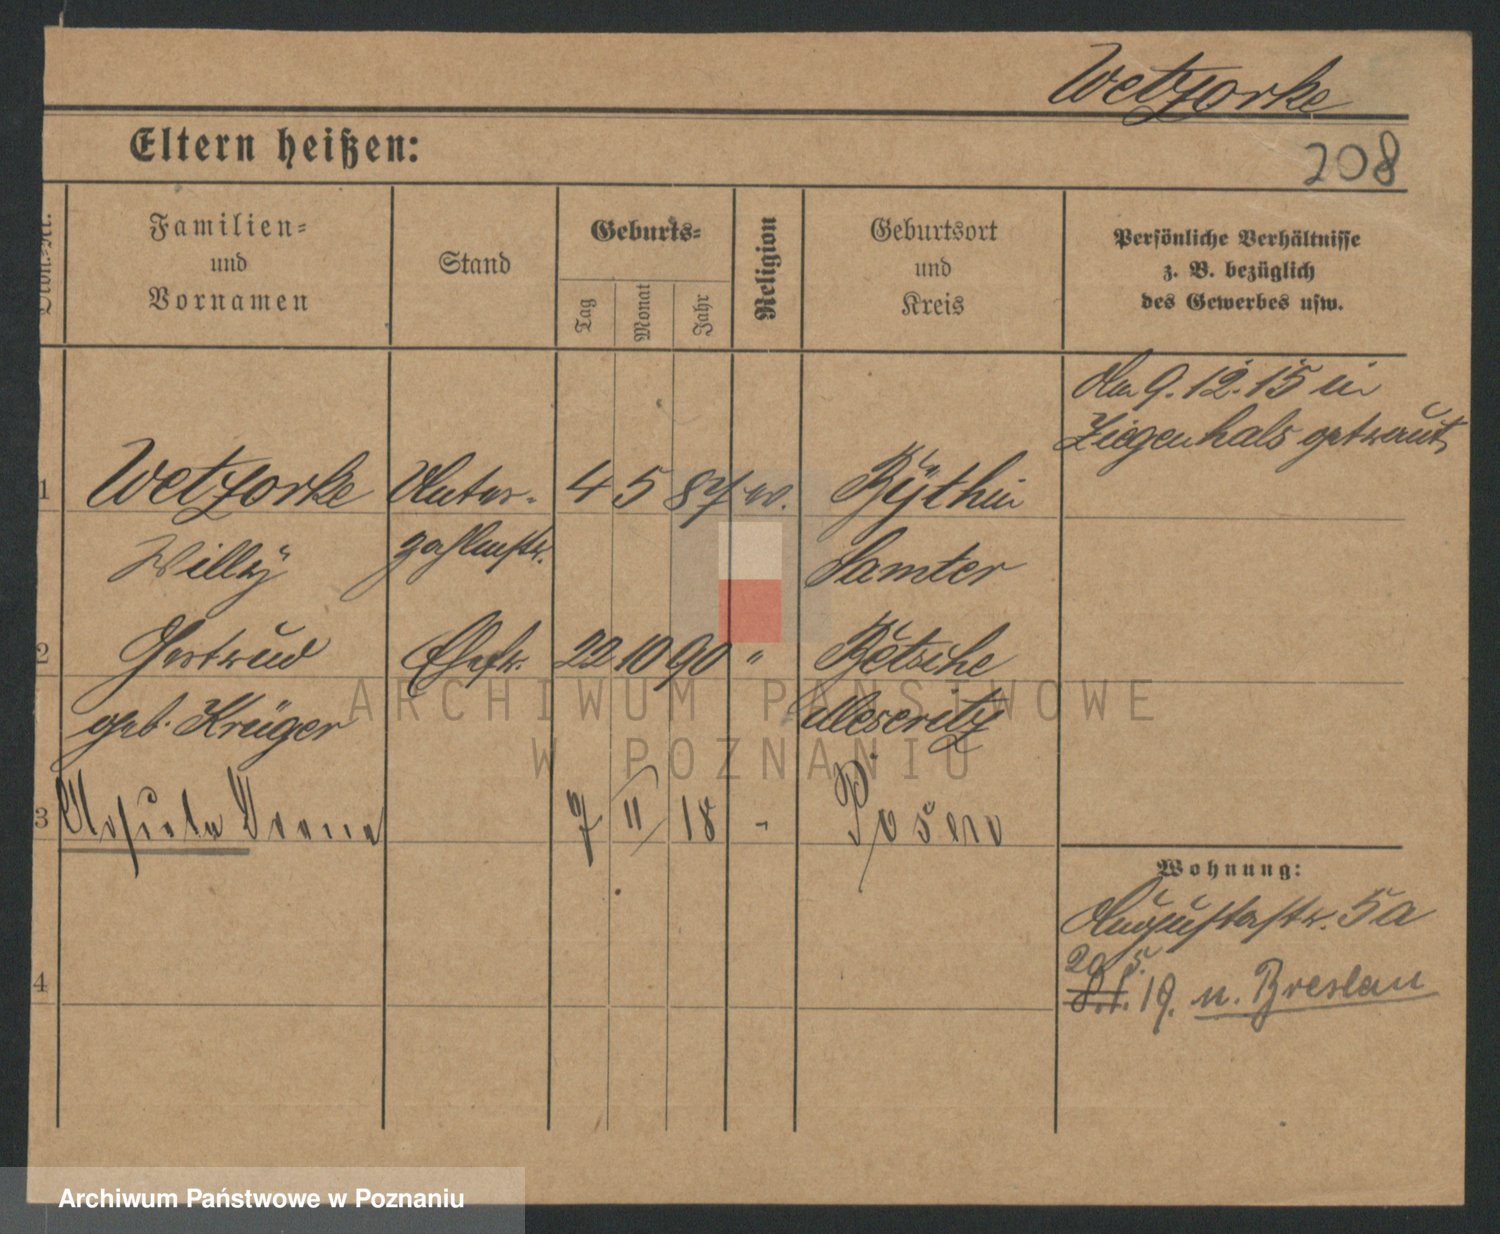 Wetzorke
Eltern heißen:
208
Familien-
und
Vornamen
Stand
Geburts-
Tag
Monat
Jahr
Religion
Geburtsort
und
Kreis
Persönliche Verhältnisse
z. B. bezüglich
des Gewerbes usw.
9.12.15 in
Ziegenhals getraut
1
Wetzorke
Unter-
4
5
87
w.
Bythin
Willy
zahlmstr.
Samter
2
Gertrud
Ehefr.
22
10
90
"
Betsche
geb. Krüger
Meseritz
3
Ursula
7
II
18
-
Posen
Wohnung:
Augustastr. 5a
20 5.
19. n. Breslau
4
ARCHIWUM PAŃSTWOWE
W POZNANIU
Archiwum Państwowe w Poznaniu